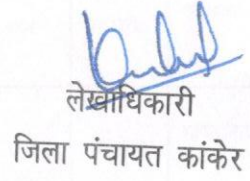 लेखाधिकारी
जिला पंचायत कांकेर